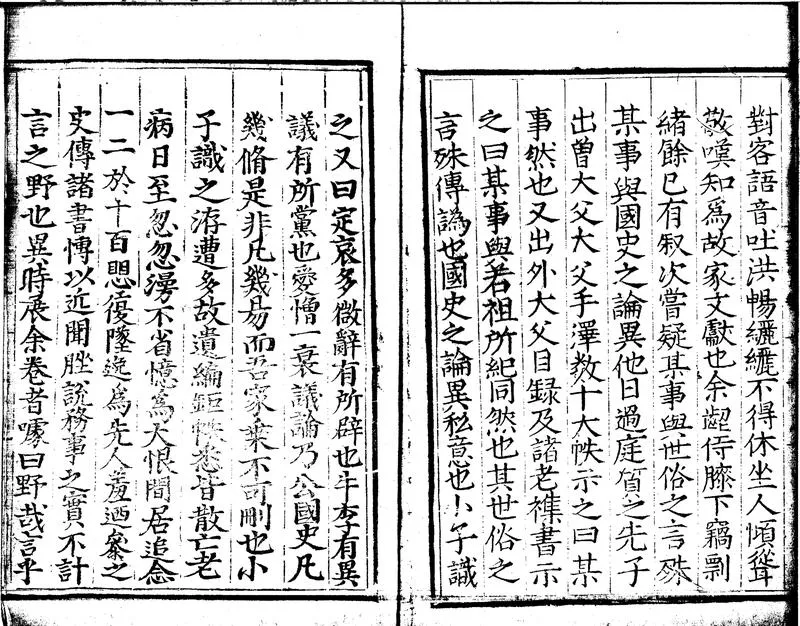 對客語音吐洪暢纚纚不得休坐人傾聳
敬嘆知為故家文獻也余齠侍膝下竊剽
緒餘已有敘次嘗疑某事與世俗之言殊
某事與國史之論異他日過庭質之先子
出曾大父大父手澤數十大帙示之曰某
事然也又出外大父目録及諸老襍書示
之曰某事與若祖所紀同然也其世俗之
言殊傳譌也國史之論異私意也小子識
之又曰定哀多微辭有所辟也牛李有異
議有所黨也愛憎一衰議論乃公國史凡
幾脩是非凡幾易而吾家乗不可刪也小
子識之洊遭多故遺編鉅帙悉皆散亡老
病日至忽忽漫不省憶為大恨間居追念
一二於千百愳復墜逸為先人羞廼寮之
史傳諸書博以近聞脞說務事之實不計
言之野也異時展余卷者噱曰野哉言乎